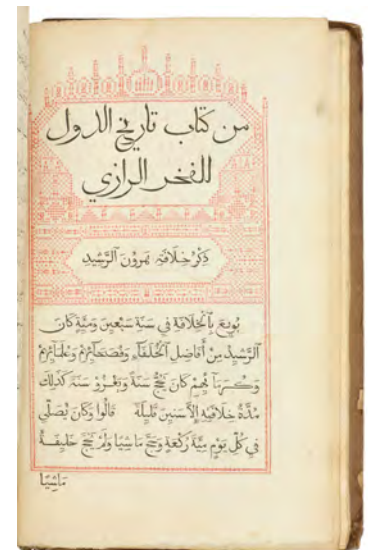 من كتاب تاريخ الدول
للفخر الرازي
ذِكْرُ خِلَافَةِ هَرُونَ الرَّشِيدِ
بُويِعَ بِالْخِلَافَةِ فِي سَنَةِ سَبْعِينَ وَمِئَةٍ كَانَ
الرَّشِيدُ مِنْ أَفَاضِلِ الْخُلَفَآءِ وَفُصَحَآئِهِمْ وَعُلَمَآئِهِمْ
وَكُرَمَآئِهِمْ كَانَ يَحُجُّ سَنَةً وَيَغْزُو سَنَةً كَذٰلِكَ
مُدَّةَ خِلَافَتِهِ إِلَّا سِنِينَ قَلِيلَةً قَالُوا وَكَانَ يُصَلِّي
فِي كُلِّ يَوْمٍ مِئَةَ رَكْعَةٍ وَحَجَّ مَاشِيًا وَلَمْ يَحُجَّ خَلِيفَةٌ
مَاشِيًا